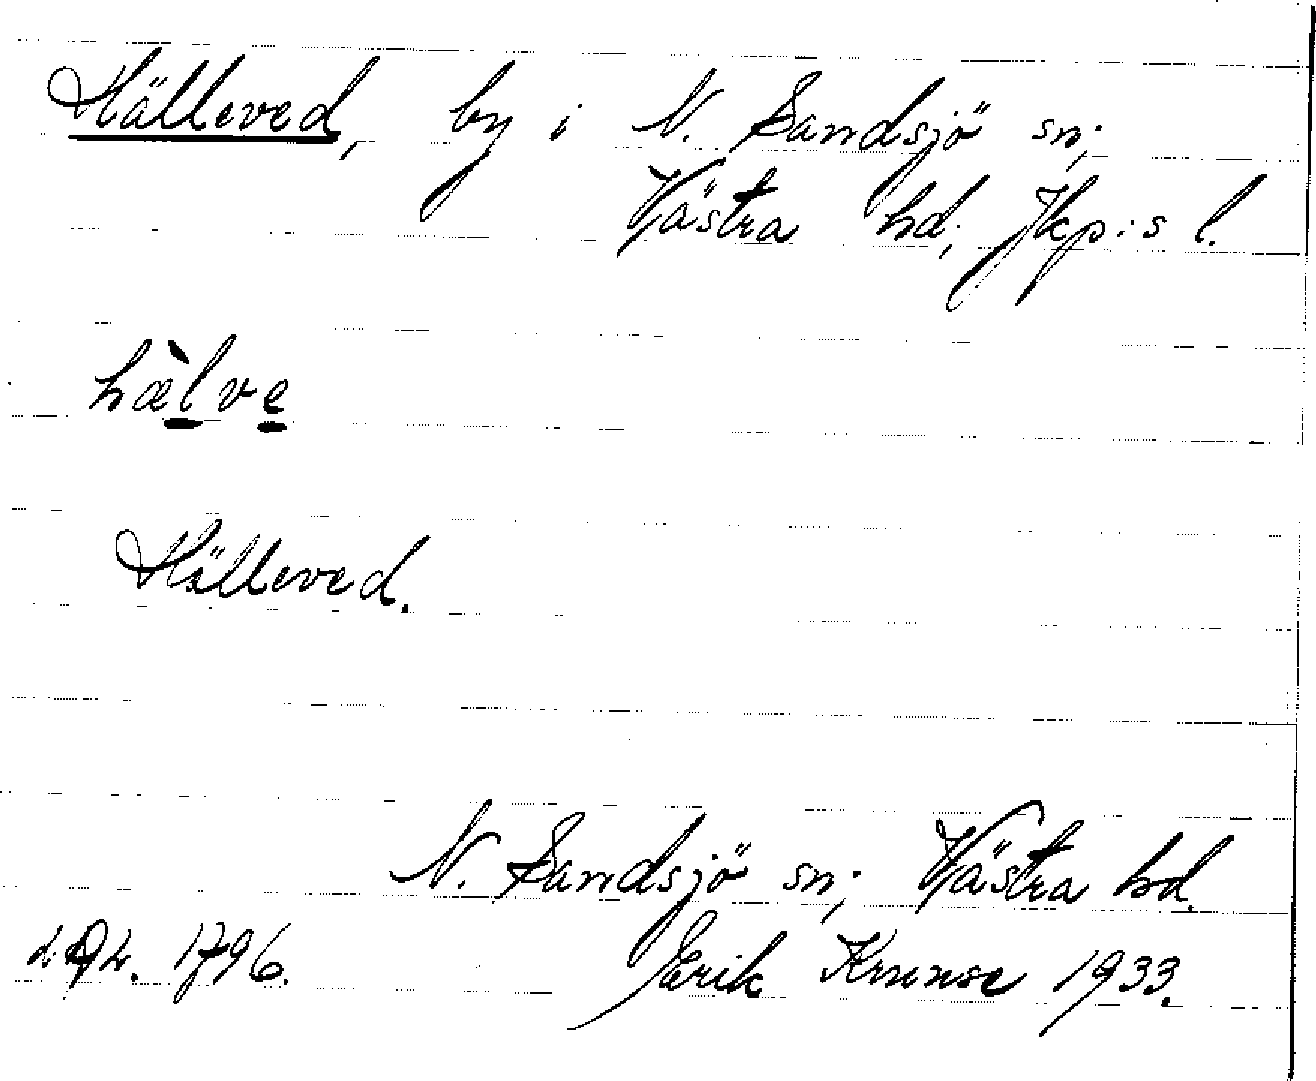 Hälleved, by i N. Sandsjö sn;
Västra hd; Jkp:s l.
hæ̀lve
Hälleved.
N. Sandsjö sn; Västra hd.
1796. Erik Krunse 1933.